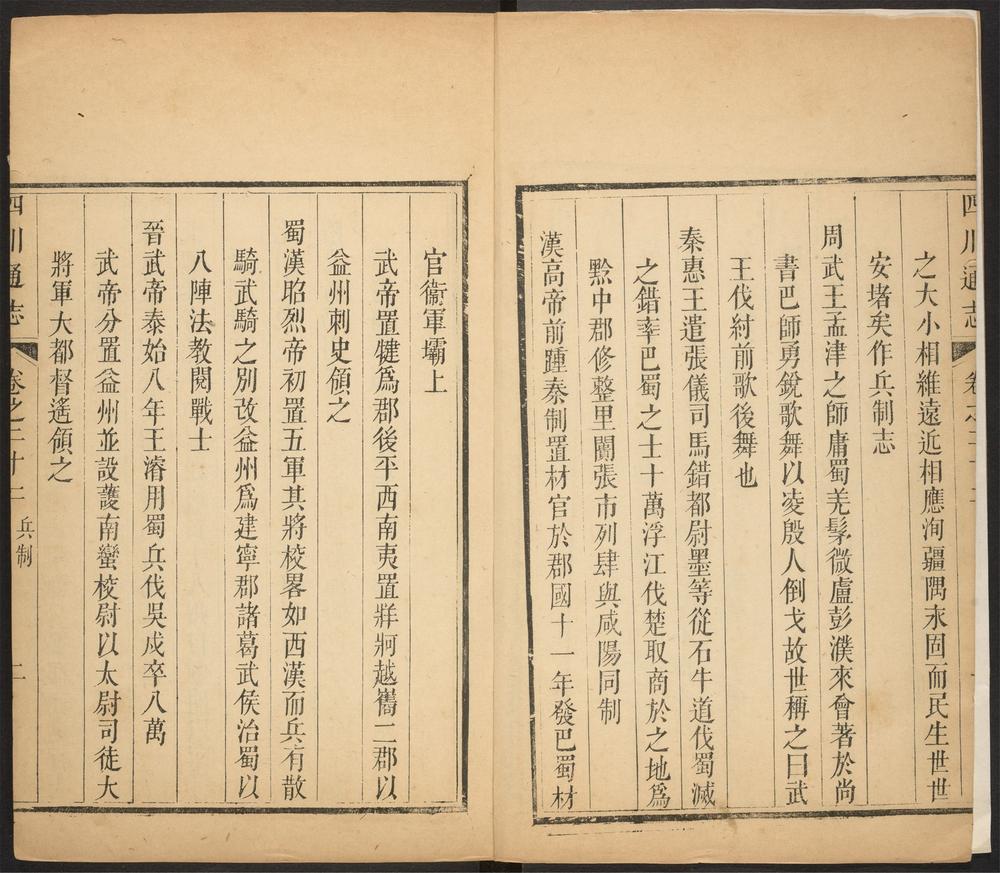 四川通志 卷之二十二
之大小相維遠近相應洵疆隅永固而民生世世
安堵矣作兵制志
周武王孟津之師庸蜀羌髳微盧彭濮來會著於尚
書巴師勇銳歌舞以凌殷人倒戈故世稱之曰武
王伐紂前歌後舞也
秦惠王遣張儀司馬錯都尉墨等從石牛道伐蜀滅
之錯率巴蜀之士十萬浮江伐楚取商於之地爲
黔中郡修整里闠張市列肆與咸陽同制
漢高帝前踵秦制置材官於郡國十一年發巴蜀材
官衞軍壩上
武帝置犍爲郡後平西南夷置牂牁越巂二郡以
益州刺史領之
蜀漢昭烈帝初置五軍其將校畧如西漢而兵有散
騎武騎之別改益州爲建寧郡諸葛武侯治蜀以
八陣法教閱戰士
晉武帝泰始八年王濬用蜀兵伐吳戍卒八萬
武帝分置益州並設護南蠻校尉以太尉司徒大
將軍大都督遙領之
四川通志 卷之二十二 兵制 二